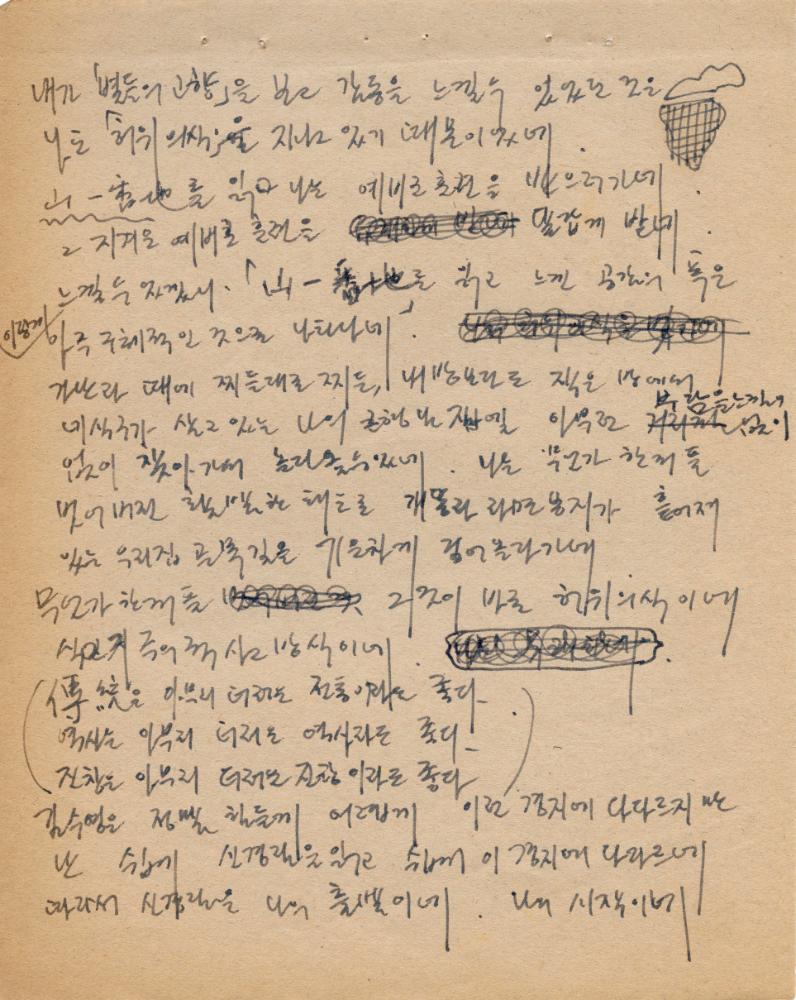 내가 「별들의 고향」을 보고 감동을 느낄 수 있었던 것은
나도 「허위의식」을 지니고 있기 때문이었네.
山一番地를 읽고 나는 예비군 훈련을 받으러 가네.
그 지겨운 예비군 훈련을 달갑게 받네
느낄 수 있겠지. 「山一番地를 읽고 느낀 공감의 폭은
이렇게
아주 구체적인 것으로 나타나네」.
가난과 때에 찌들대로 찌든, 내 방보다도 작은 방에서
네 식구가 살고 있는 나의 집엘 아무런 부담을 느낌이 없이
없이 찾아가서 놀다 올 수 있네. 나는 무언가 한꺼풀
벗어버린 태도로 개똥과 라면봉지가 흩어져
있는 우리집 골목길을 기운차게 걸어 올라가네
무언가 한꺼풀 그것이 바로 허위의식이네
식민지주의적 사고방식이네.
(傳統은 아무리 더러운 전통이라도 좋다.
역사는 아무리 더러운 역사라도 좋다.
진창은 아무리 더러운 진창이라도 좋다)
김수영은 정말 힘들게 어렵게 이런 경지에 다다르지만
난 쉽게 신경림을 읽고 쉽게 이 경지에 다다르네
따라서 신경림은 나의 출발이네. 나의 시작이네